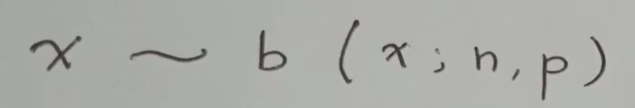 x ~ b (x; n, p)